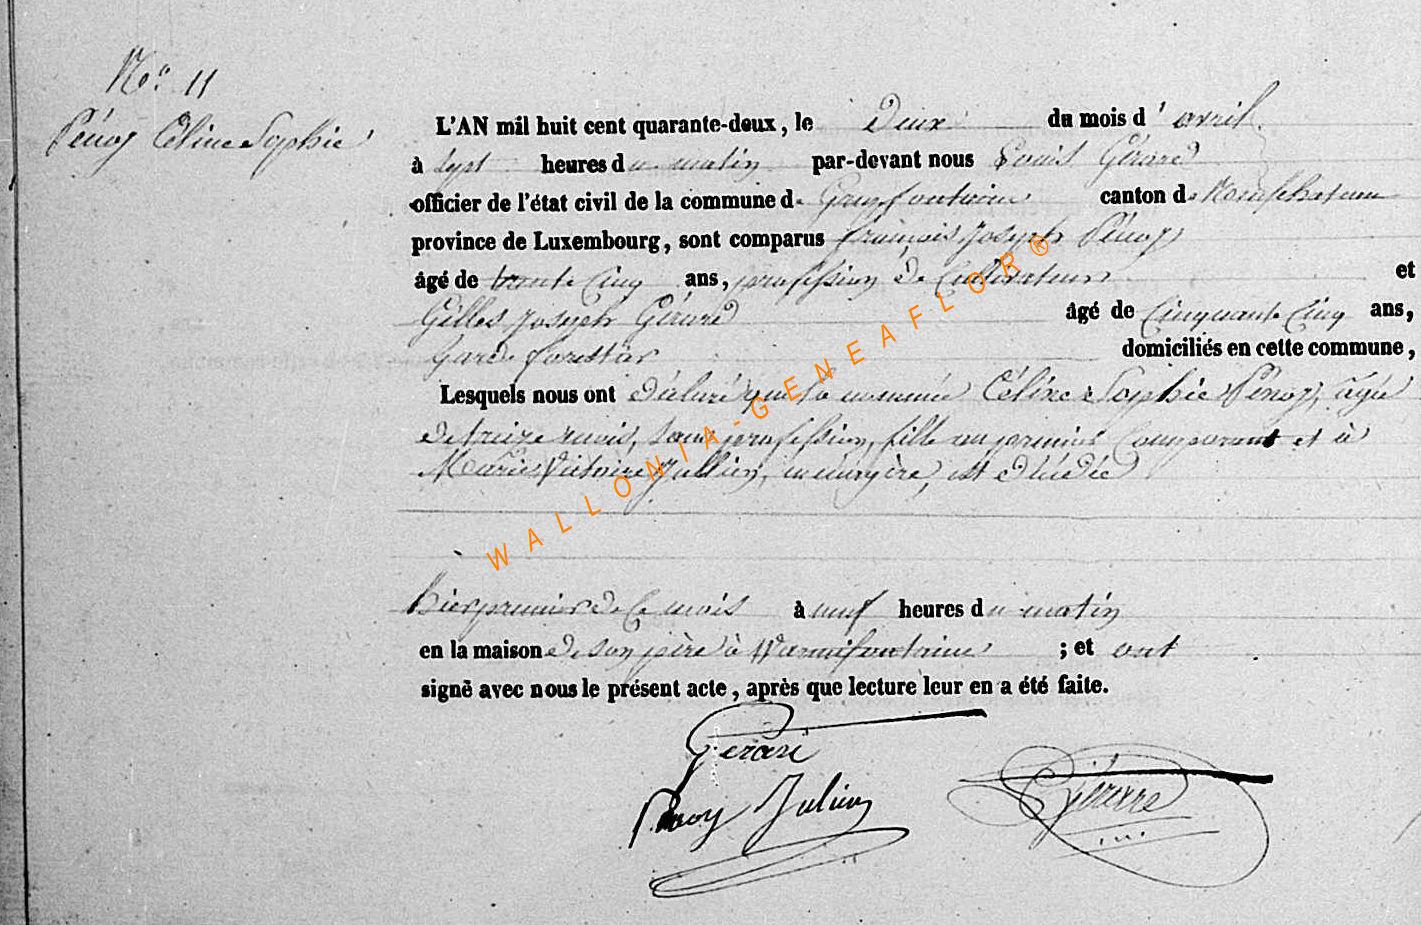 No. 11
Pénoy Céline Sophie
L'AN mil huit cent quarante-deux, le Deux du mois d'avril
à Sept heures du matin par-devant nous Louis Gérard
officier de l'état civil de la commune de Grapfontaine canton de Neufchateau
province de Luxembourg, sont comparus François Joseph Pénoy
âgé de trente cinq ans, profession de Cultivateur et
Gilles Joseph Gérard âgé de Cinquante Cinq ans,
garde forestier domiciliés en cette commune,
Lesquels nous ont déclaré que la nommée Céline Sophie Pénoy, agée
de treize mois, sans profession, fille au premier Comparant et à
Marie Victoire Jullien, ménagère, est décédée
hier premier de Ce mois à neuf heures du matin
en la maison de son père à Warmifontaine ; et ont
signé avec nous le présent acte, après que lecture leur en a été faite.
Gérard
Penoy Julien
Gérard
WALLONIA-GENEAFLOR®